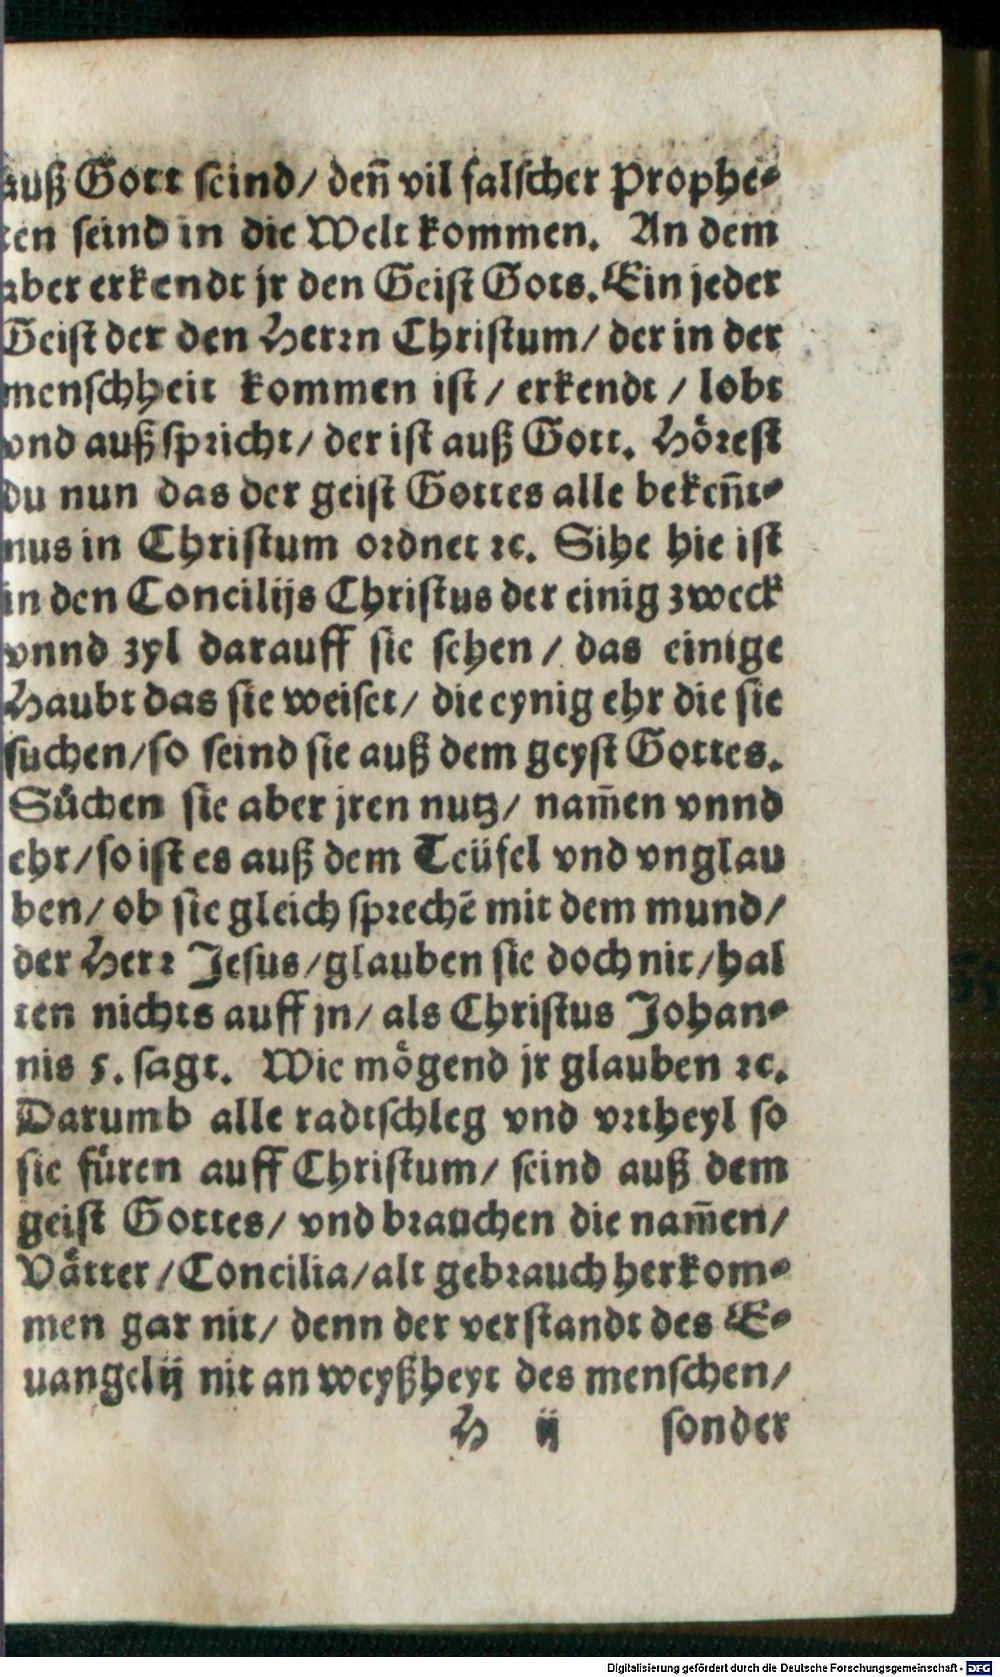 auß Gott seind/ deñ vil falscher Prophe-
ten seind in die Welt kommen. An dem
aber erkendt jr den Geist Gots. Ein jeder
Geist der den Herrn Christum/ der in der
menschheit kommen ist/ erkendt/ lobt
vnd auß spricht/ der ist auß Gott. Hörest
du nun das der geist Gottes alle bekeñt-
nus in Christum ordnet ꝛc. Sihe hie ist
in den Concilijs Christus der einig zweck
vnnd zyl darauff sie sehen/ das einige
Haubt das sie weiset/ die eynig ehr die sie
suchen/ so seind sie auß dem geyst Gottes.
Sůchen sie aber jren nutz/ nam̃en vnnd
ehr/ so ist es auß dem Teüfel vnd vnglau
ben/ ob sie gleich sprechẽ mit dem mund/
der Herr Jesus/ glauben sie doch nit/ hal
ten nichts auff jn/ als Christus Johan-
nis 5. sagt. Wie mögend jr glauben ꝛc.
Darumb alle radtschleg vnd vrtheyl so
sie füren auff Christum/ seind auß dem
geist Gottes/ vnd brauchen die nam̃en/
Vätter/ Concilia/ alt gebrauch herkom-
men gar nit/ denn der verstandt des E-
uangelij nit an weyßheyt des menschen/
H ij sonder
Digitalisierung gefördert durch die Deutsche Forschungsgemeinschaft - DFG